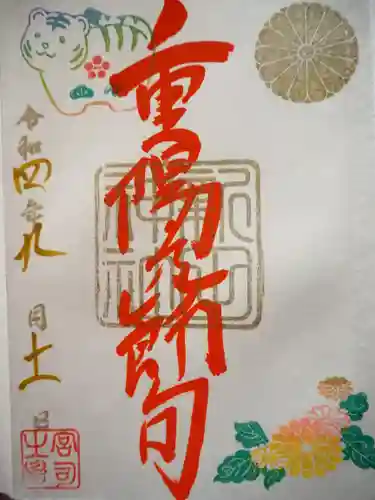 重陽の節句
令和四年九月十一日
宮司